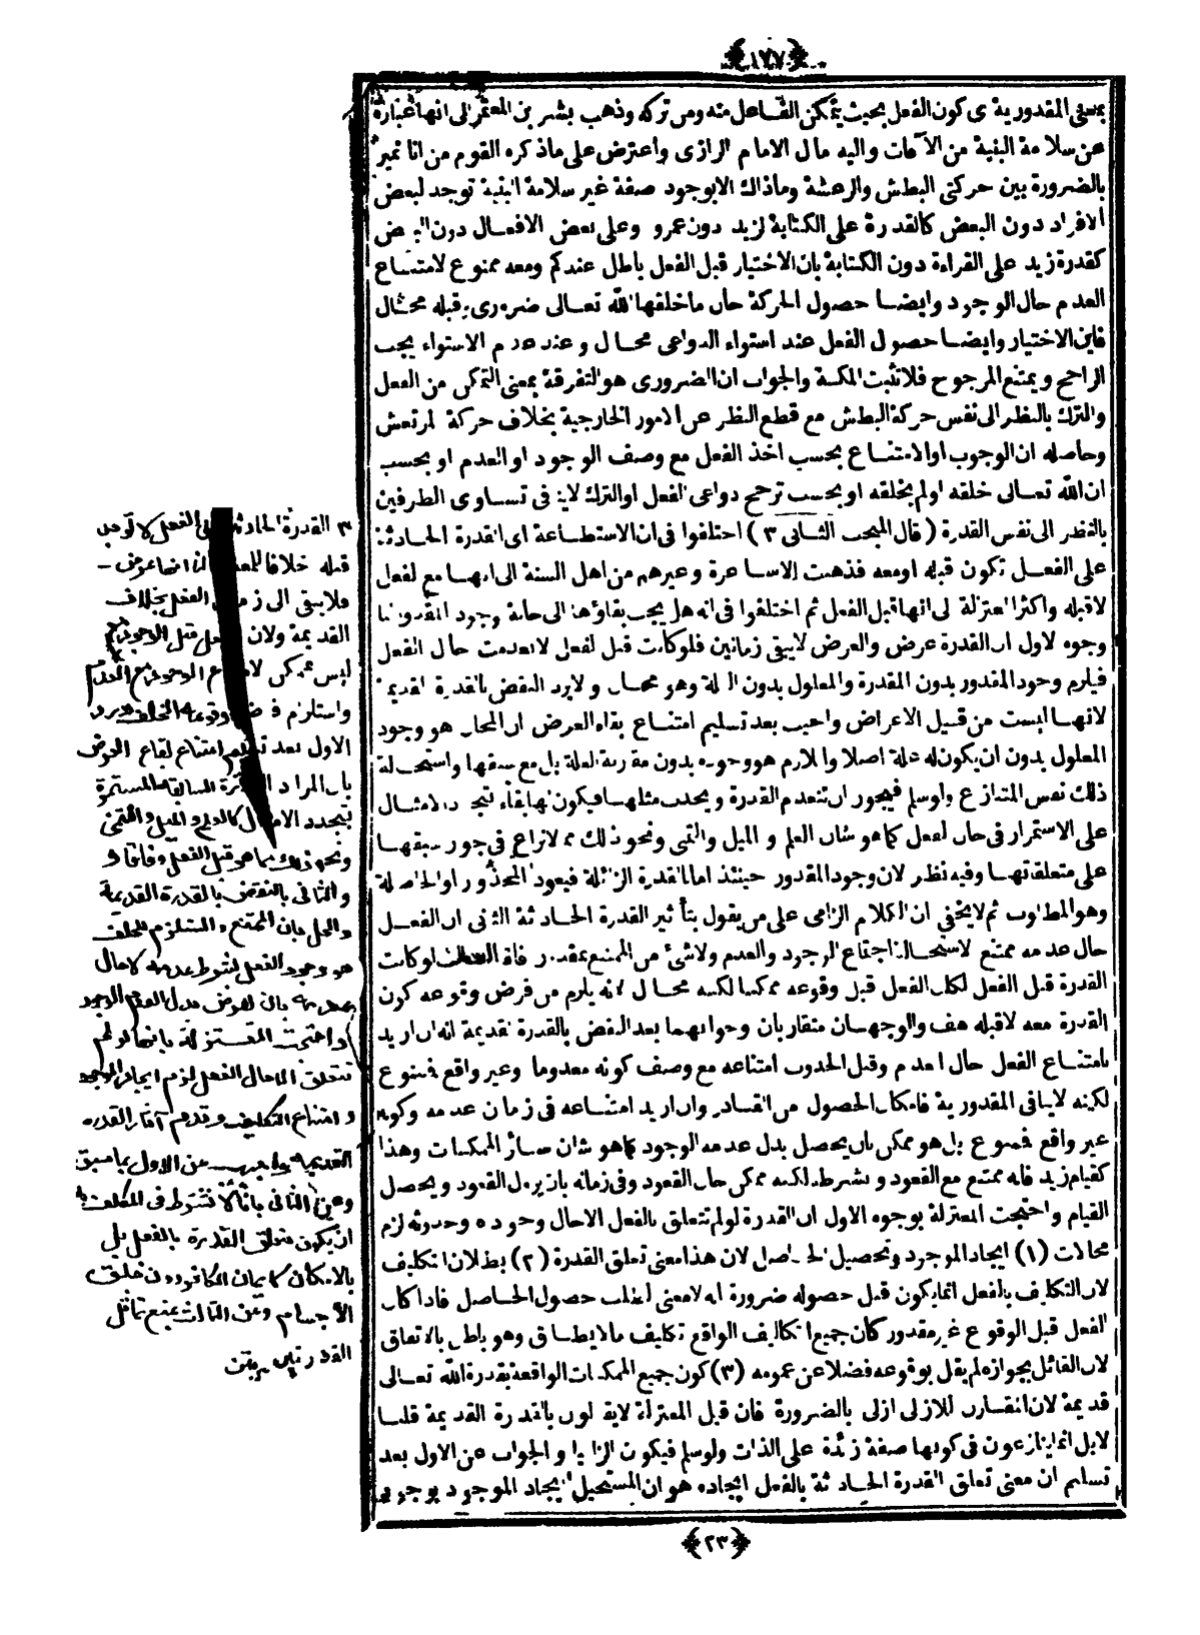 ﴿١٧٧﴾
بمعنى المقدورية اى كون الفعل بحيث يتمكن الفاعل منه ومن تركه وذهب بشر بن المعتمر الى انها عبارة
عن سلامة البنية من الآفات واليه مال الامام الرازى واعترض على ما ذكره القوم من انا نميز
بالضرورة بين حركتى البطش والرعشة وما ذاك الا بوجود صفة غير سلامة البنية توجد لبعض
الافراد دون البعض كالقدرة على الكتابة لزيد دون عمرو وعلى بعض الافعال دون البعض
كقدرة زيد على القراءة دون الكتابة بان الاختيار قبل الفعل باطل عندكم ومعه ممنوع لامتناع
العدم حال الوجود وايضا حصول الحركة حال ما خلقها الله تعالى ضرورى وقبله محال
فاين الاختيار وايضا حصول الفعل عند استواء الدواعى محال وعند عدم الاستواء يجب
الراجح ويمتنع المرجوح فلا تثبت المكنة والجواب ان الضرورى هو التفرقة بمعنى التمكن من الفعل
والترك بالنظر الى نفس حركة البطش مع قطع النظر عن الامور الخارجية بخلاف حركة المرتعش
وحاصله ان الوجوب او الامتناع بحسب اخذ الفعل مع وصف الوجود او العدم او بحسب
ان الله تعالى خلقه اولم يخلقه او بحسب ترجح دواعى الفعل او الترك لاينافى تساوى الطرفين
بالنظر الى نفس القدرة ( قال المبحث الثانى ٣ ) اختلفوا فى ان الاستطاعة اى القدرة الحادثة
على الفعل تكون قبله او معه فذهبت الاشاعرة وغيرهم من اهل السنة الى انها مع الفعل
لا قبله واكثر المعتزلة الى انها قبل الفعل ثم اختلفوا فى انه هل يجب بقاؤها الى حالة وجود المقدور لنا
وجوه الاول ان القدرة عرض والعرض لايبقى زمانين فلو كانت قبل الفعل لانعدمت حال الفعل
فيلزم وجود المقدور بدون القدرة والمعلول بدون العلة وهو محال ولا يرد النقض بالقدرة القديمة
لانها ليست من قبيل الاعراض واجيب بعد تسليم امتناع بقاء العرض ان المحال هو وجود
المعلول بدون ان يكون له علة اصلا واللازم هو وجوده بدون مقارنة العلة بل مع سبقها واستحالة
ذلك نفس المتنازع ولو سلم فيجوز ان تنعدم القدرة ويحدث مثلها فيكون لها بقاء بتجدد الامثال
على الاستمرار فى حال الفعل كما هو شان العلم والميل والتمنى ونحو ذلك مما لا نزاع فى جواز سبقها
على متعلقاتها وفيه نظر لان وجود المقدور حينئذ اما بالقدرة الزائلة فيعود المحذور او الحاصلة
وهو المطلوب ثم لايخفى ان الكلام الزامى على من يقول بتأثير القدرة الحادثة الثانى ان الفعل
حال عدمه ممتنع لاستحالة اجتماع الوجود والعدم ولا شئ من الممتنع بمقدور وفاقا الثالث لو كانت
القدرة قبل الفعل لكان الفعل قبل وقوعه ممكنا لكنه محال لانه يلزم من فرض وقوعه كون
القدرة معه لا قبله هف والوجهان متقاربان وجوابهما بعد النقض بالقدرة القديمة انه ان اريد
بامتناع الفعل حال العدم وقبل الحدوث امتناعه مع وصف كونه معدوما وغير واقع فممنوع
لكنه لاينافى المقدورية فامكان الحصول من القادر وان اريد امتناعه فى زمان عدمه وكونه
غير واقع فممنوع بل هو ممكن بان يحصل بدل عدمه الوجود كما هو شان سائر الممكنات وهذا
كقيام زيد فانه ممتنع مع القعود وبشرطه لكنه ممكن حال القعود وفى زمانه بان يزول القعود ويحصل
القيام واحتجت المعتزلة بوجوه الاول ان القدرة لو لم تتعلق بالفعل الا حال وجوده وحدوثه لزم
محالات (١) ايجاد الموجود وتحصيل الحاصل لان هذا معنى تعلق القدرة (٢) بطلان التكليف
لان التكليف بالفعل انما يكون قبل حصوله ضرورة انه لامعنى لطلب حصول الحاصل فاذا كان
الفعل قبل الوقوع غير مقدور كان جميع التكاليف الواقع تكليف مالا يطاق وهو باطل بالاتفاق
لان القائل بجوازه لم يقل بوقوعه فضلا عن عمومه (٣) كون جميع الممكنات الواقعة بقدرة الله تعالى
قديمة لان المقارن للازلى ازلى بالضرورة فان قيل المعتزلة لايقولون بالقدرة القديمة قلنا
لابل انما ينازعون فى كونها صفة زائدة على الذات ولو سلم فيكون الزاميا والجواب عن الاول بعد
تسليم ان معنى تعلق القدرة الحادثة بالفعل ايجاده هو ان المستحيل ايجاد الموجود بوجود
٣ القدرة الحادثة على الفعل لا توجد
قبله خلافا للمعتزلة لنا انها عرض
فلا يبقى الى زمان الفعل بخلاف
القديمة ولان الفعل قبل الوجود
ليس بممكن لامتناع الوجود مع العدم
واستلزم فرض وقوعه الخلف ويرد
الاول بعد تسليم امتناع بقاء العرض
بان المراد القدرة السابقة المستمرة
بتجدد الامثال كالعلم والميل والتمنى
ونحو ذلك مما هو قبل الفعل وفاقا
والثانى بالنقض بالقدرة القديمة
والحل بان الممتنع والمستلزم للخلف
هو وجود الفعل بشرط عدمه لا حال
عدمه بان يفرض بدل العدم الوجود
واحتجت المعتزلة بانها لو لم
تتعلق الا حال الفعل لزم ايجاد الموجود
وامتناع التكليف وقدم آثار القدرة
القديمة واجيب عن الاول بما سبق
وعن الثانى بانا لا نشترط فى المكلف به
ان يكون متعلق القدرة بالفعل بل
بالامكان كايمان الكافر دون خلق
الاجسام وعن الثالث بمنع تماثل
القدرتين
﴿٢٣﴾